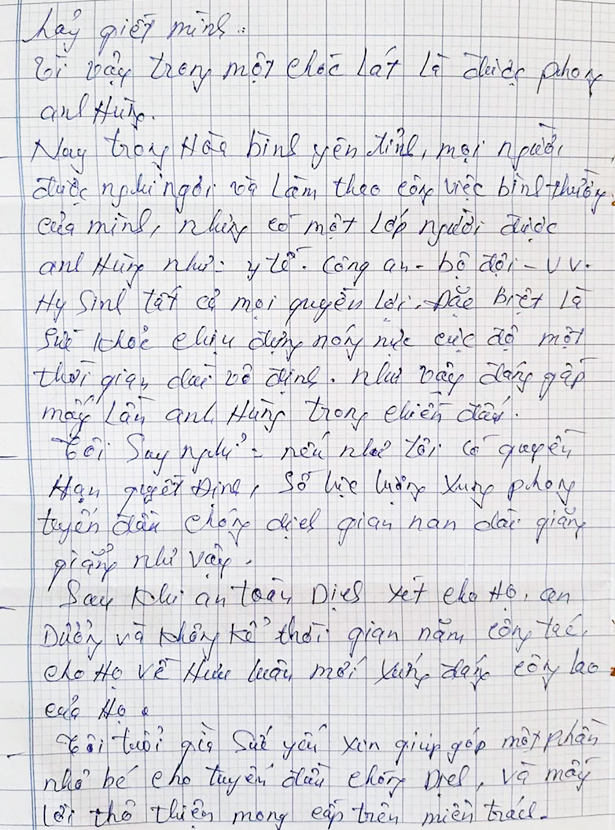 hãy giết mình.
Vì vậy trong một chốc lát là được phong
anh Hùng.
Nay trong Hòa bình yên tỉnh, mọi người
được nghỉ ngơi và làm theo công việc bình thường
của mình, nhưng có một lớp người được
anh Hùng như: y tế - Công an - bộ đội - vv.
Hy Sinh tất cả mọi quyền lợi. Đặc biệt là
sức khỏe chịu đựng nóng nực cực độ một
thời gian dài vô định. như vậy đáng gấp
mấy lần anh Hùng trong chiến đấu.
Tôi Say nghỉ = nếu như tôi có quyền
Hạn quyết Định, số lực lượng xung phong
tuyến đầu chống dịch gian nan dài giằng
giẵng như vậy.
Say khi an toàn Dịch xét cho Họ. an
Dưởng và không kể thời gian năm công tác,
cho Họ về Hưu luân mới xứng đáng công lao
của Họ.
Tôi tuổi già sức yếu xin giúp góp một phần
nhỏ bé cho tuyến đầu chống Dịch, và mấy
lời thô thiện mong cấp trên miễn trách.